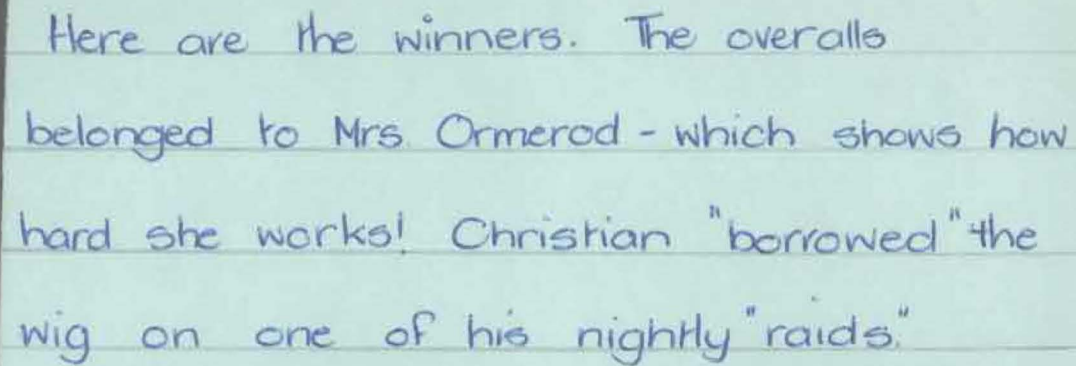 Here are the winners. The overalls
belonged to Mrs. Ormerod - which shows how
hard she works! Christian "borrowed" the
wig on one of his nightly "raids."